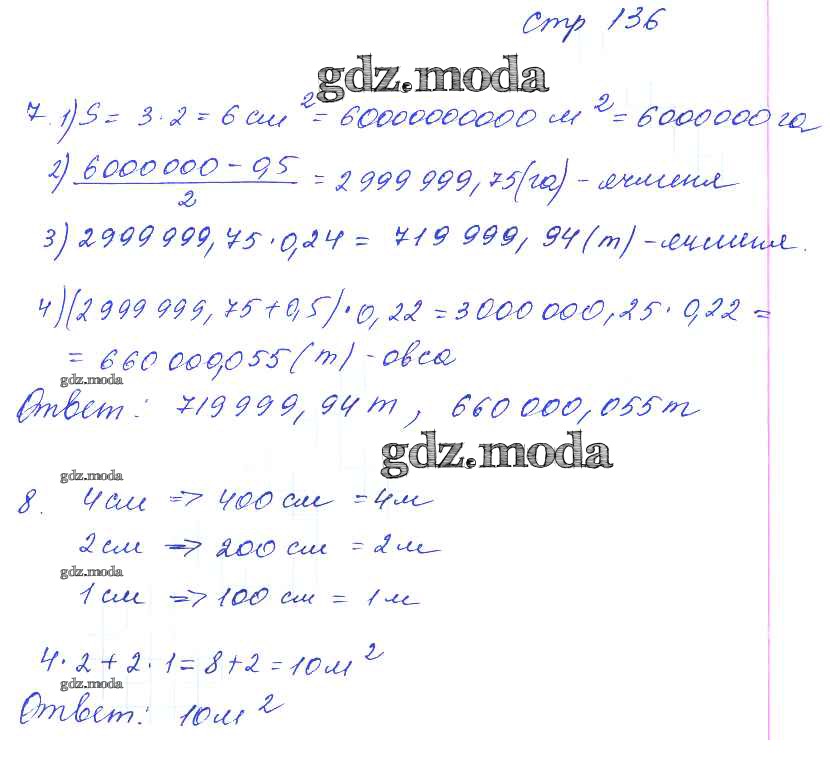 стр 136
gdz.moda
7. 1) S = 3·2 = 6 см² = 60000000000 м² = 6000000 га
2) (6000 000 - 0,5)/2 = 2999 999,75 (га) - ячменя
3) 2999 999,75·0,24 = 719 999,94 (т) - ячменя.
4) (2999 999,75 + 0,5)·0,22 = 3000 000,25·0,22 =
= 660 000,055 (т) - овса
gdz.moda
Ответ: 719999,94 т, 660 000,055 т
gdz.moda
gdz.moda
8. 4 см => 400 см = 4 м
2 см => 200 см = 2 м
gdz.moda
1 см => 100 см = 1 м
4·2 + 2·1 = 8 + 2 = 10 м²
gdz.moda
Ответ: 10 м²